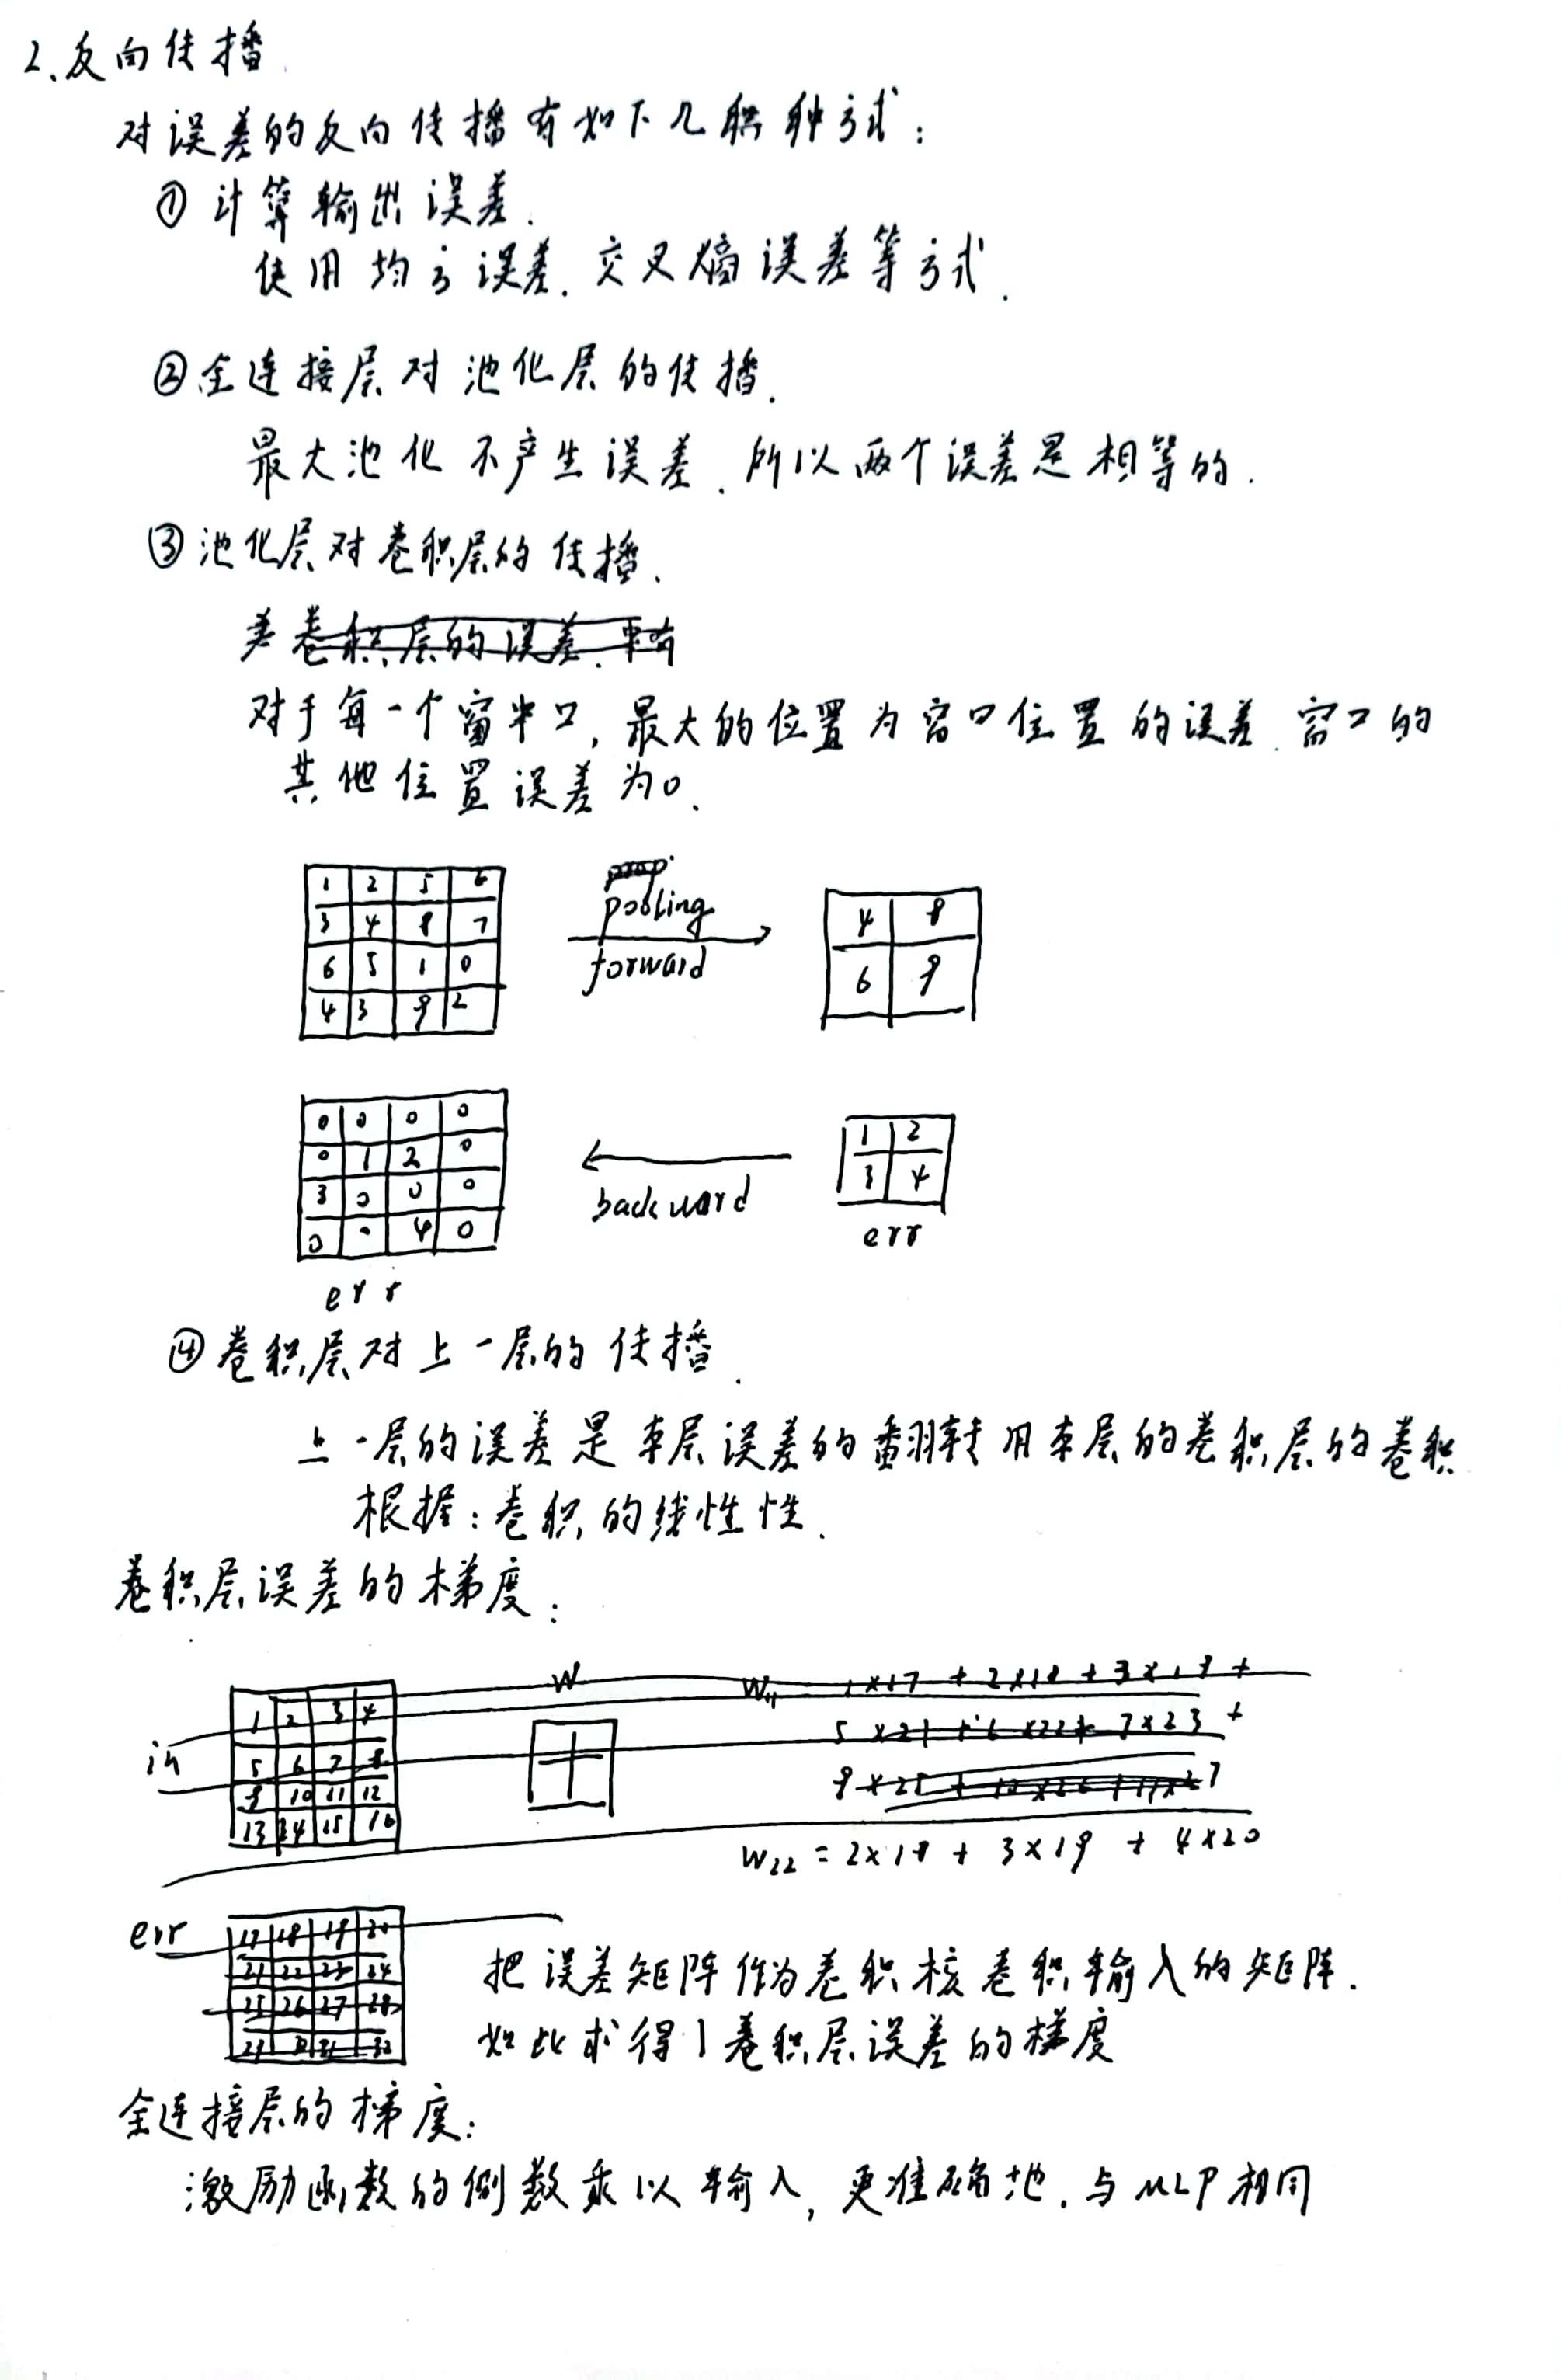 2.反向传播
对误差的反向传播有如下几种方式:
①计算输出误差.
使用均方误差.交叉熵误差等方式.
②全连接层对池化层的传播.
最大池化不产生误差.所以两个误差是相等的.
③池化层对卷积层的传播.
卷积层的误差.
对于每一个窗口,最大的位置为窗口位置的误差.窗口的
其他位置误差为0.
1 2 5 6
3 4 8 7
6 5 1 0
4 3 9 2
pooling
forward
4 8
6 9
0 0 0 0
0 1 2 0
3 0 0 0
0 0 4 0
err
backward
1 2
3 4
err
④卷积层对上一层的传播.
上一层的误差是本层误差的翻转用本层的卷积层的卷积
根据:卷积的线性性.
卷积层误差的梯度:
in
1 2 3 4
5 6 7 8
9 10 11 12
13 14 15 16
W
W11 1×17 + 2×18 + 3×19 +
5×21 + 6×22 + 7×23 +
9×25 + 10×26 + 11×27
W22 = 2×18 + 3×19 + 4×20
err
17 18 19 20
21 22 23 24
25 26 27 28
29 30 31 32
把误差矩阵作为卷积核卷积输入的矩阵.
如此求得卷积层误差的梯度
全连接层的梯度:
激励函数的倒数乘以输入,更准确地.与MLP相同